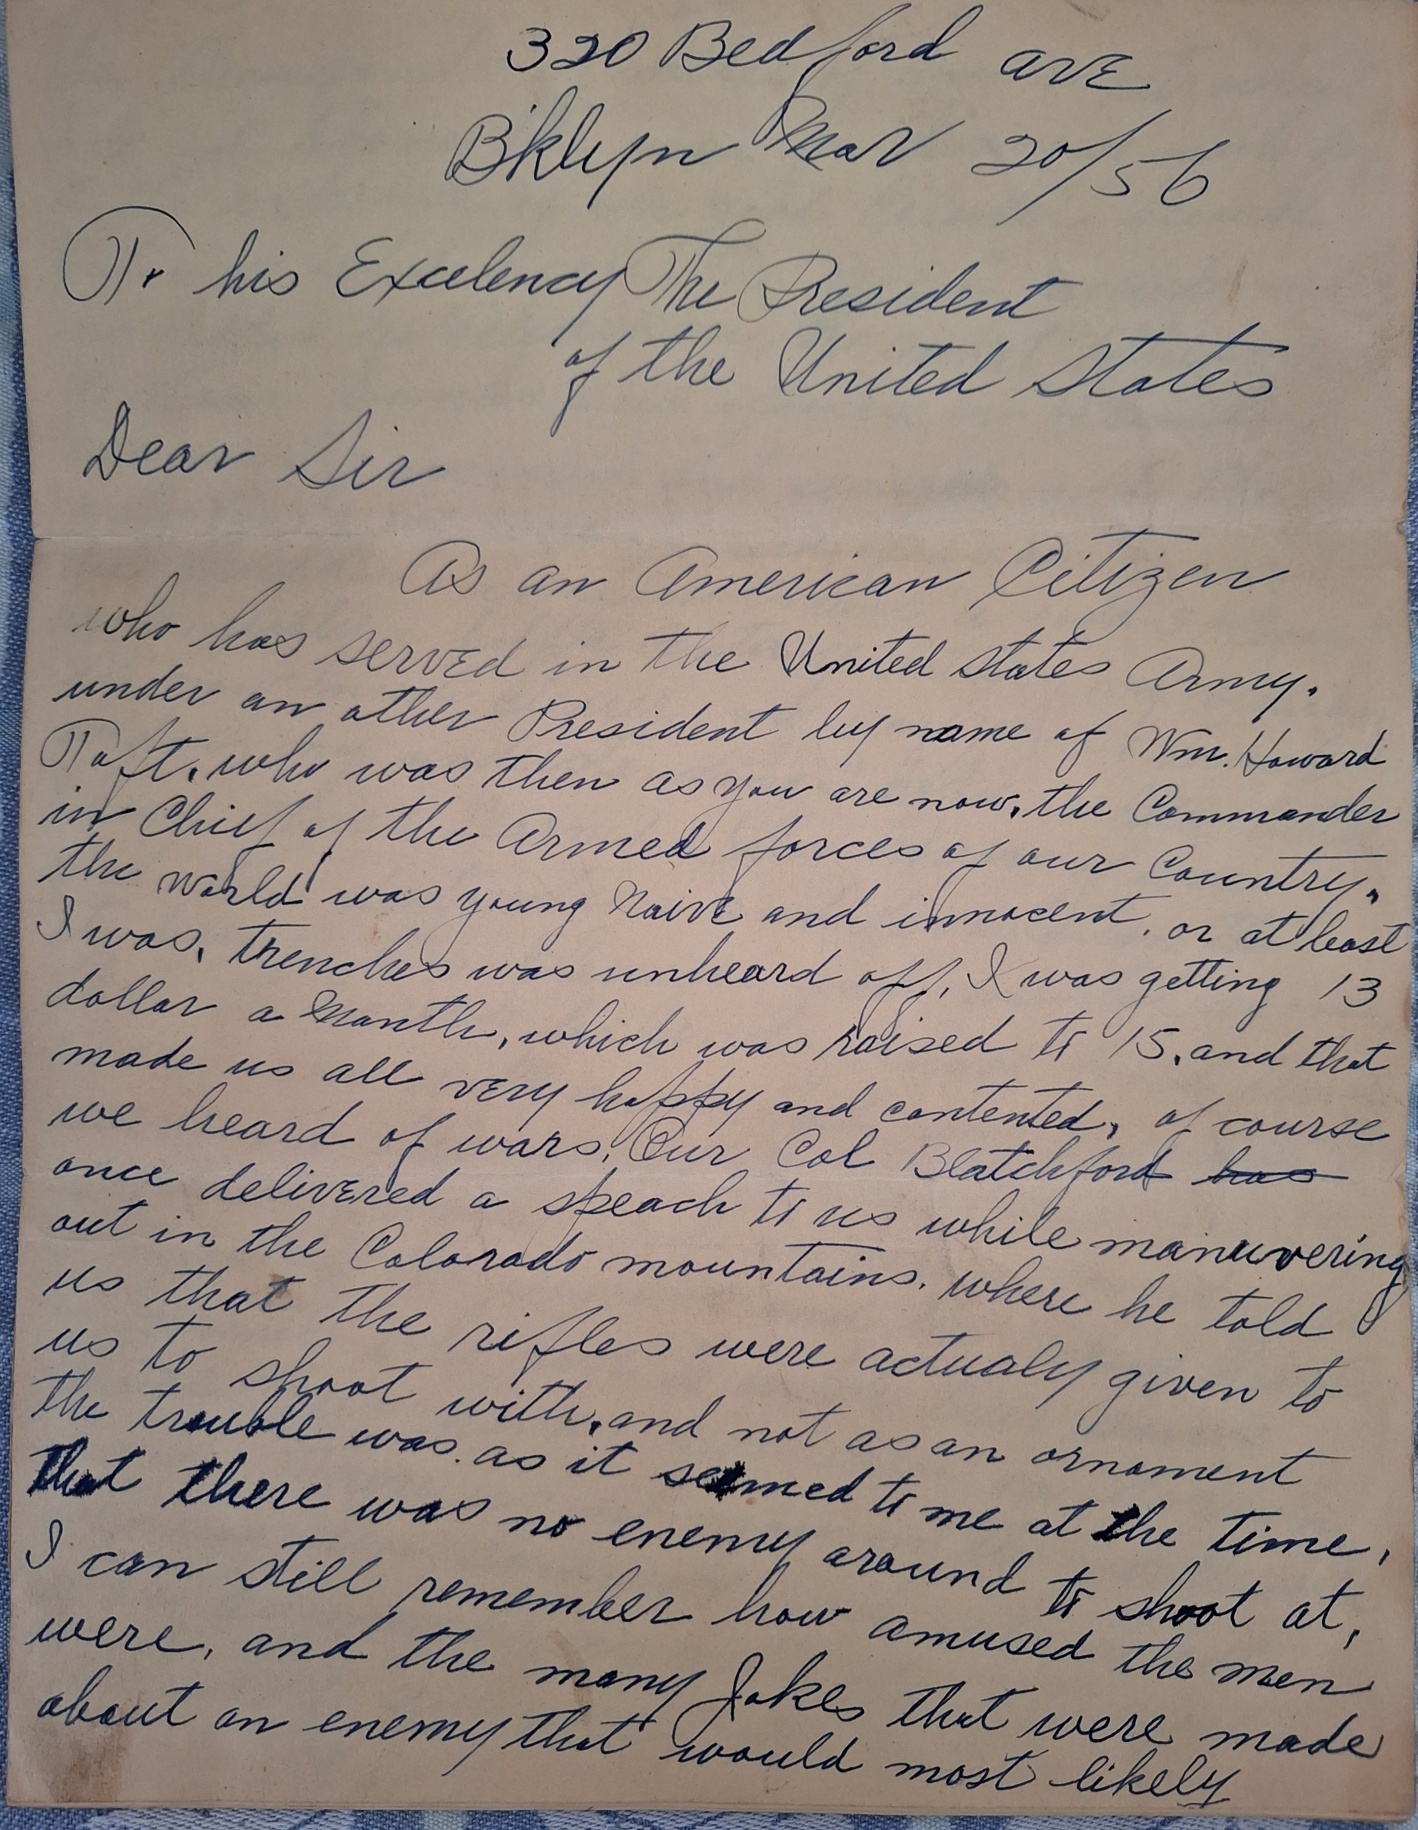 320 Bedford ave
B'klyn Mar 20/56
To his Excelency The President
of the United States
Dear Sir
As an American Citizen
who has served in the United States Army.
under an other President by name of Wm. Howard
Taft. who was then as you are now, the Commander
in Chief of the Armed forces of our Country.
the world was young Naive and innocent, or at least
I was, trenches was unheard off, I was getting 13
dollar a Month, which was raised to 15, and that
made us all very happy and contented, of course
we heard of wars, Our Col Blatchford has
once delivered a speach to us while manuvering
out in the Colorado mountains. where he told
us that the rifles were actualy given to
us to shoot with, and not as an ornament
the trouble was. as it seemed to me at the time,
that there was no enemy around to shoot at,
I can still remember how amused the men
were, and the many Jokes that were made
about an enemy that would most likely